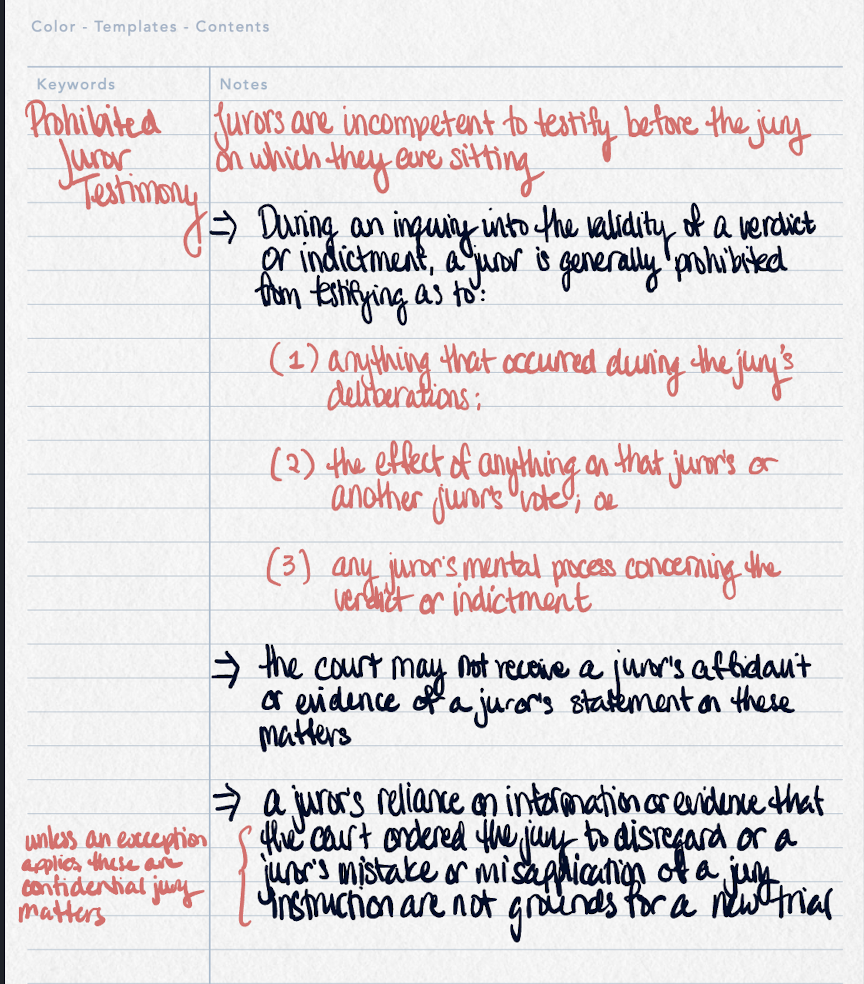 Color - Templates - Contents
Keywords
Notes
Prohibited
Juror
Testimony
Jurors are incompetent to testify before the jury
on which they are sitting
⇒ During an inquiry into the validity of a verdict
or indictment, a juror is generally prohibited
from testifying as to:
(1) anything that occurred during the jury's
deliberations;
(2) the effect of anything on that juror's or
another juror's vote; or
(3) any juror's mental process concerning the
verdict or indictment
⇒ the court may not receive a juror's affidavit
or evidence of a juror's statement on these
matters
⇒ a juror's reliance on information or evidence that
the court ordered the jury to disregard or a
juror's mistake or misapplication of a jury
instruction are not grounds for a new trial
unless an exception
applies, these are
confidential jury
matters